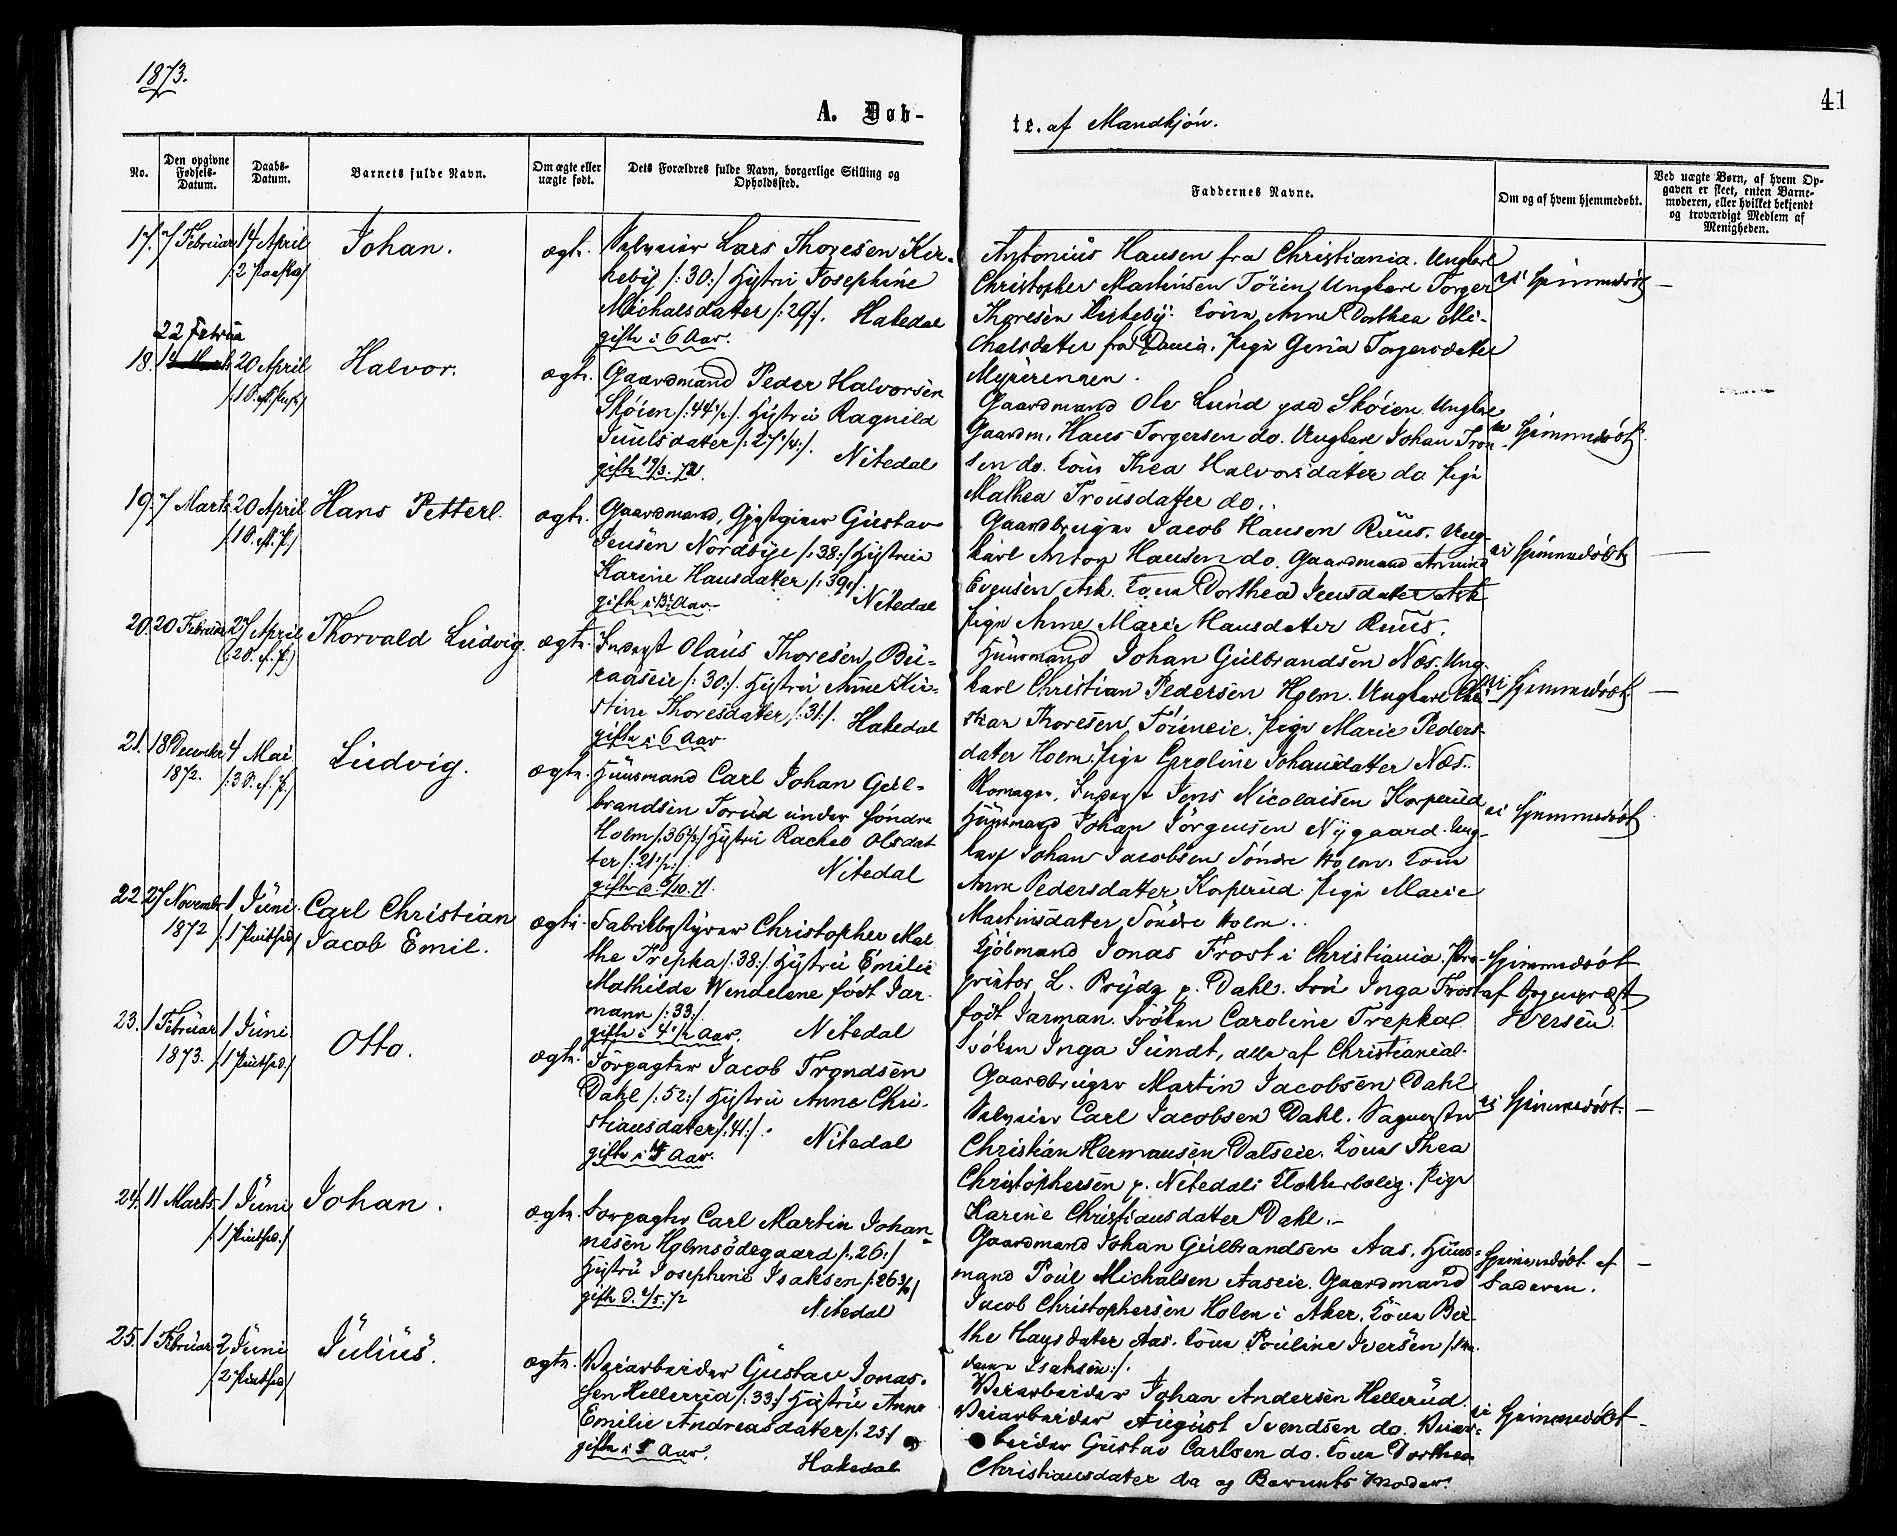 1873.
41
A. Døb-
te. af Mandkjøn.
No.
Den opgivne Fødsels-Datum.
Daabs-Datum.
Barnets fulde Navn.
Om ægte eller uægte født.
Dets Forældres fulde Navn, borgerlige Stilling og Opholdssted.
Faddernes Navne.
Om og af hvem hjemmedøbt.
Ved uægte Børn, af hvem Op-
gaven er skeet, enten Barne-
moderen, eller hvilket bekjendt
og troværdigt Medlem af
Menigheden.
17. 7 Februar 14 April Johan. ægte.
/2 Paaskd/
Selveier Lars Thoresen Kir-
keby /:30:/ Hustru Josephine
Michalsdatter /:29:/. Hakedal
gifte i 6 Aar.
Antonius Hansen fra Christiania. Ungkarl
Christopher Martinsen Töien, Ungkarl Torger
Thoresen Kirkeby. Kone Anne Dorthea Mi-
chalsdatter fra Dania. Pige Gunia Torgersdatter
Myrerengen.
ei hjemmedøbt —
22 Februa
18. 20 April Halvor. ægte.
/1 S. e. Paaske/
Gaardmand Peder Halvorsen
Skøien /:44½:/. Hustru Ragnild
Juulsdatter /:27¼:/. Nitedal
gifte 19/3. 72.
Gaardmand Ole Lund paa Skøien. Ungkarl
Gaardm. Hans Torgersen do. Ungkarl Johan Tron-
sen do. Kone Thea Halvorsdatter do. Pige
Mathea Tronsdatter do..
ei hjemmedøbt.
19. 7 Marts 20 April Hans Petter. ægte.
/1 S. e. P./
Gaardmand, Gjestgiver Gustav
Jensen Nordbye /:38:/ Hustru
Karine Hansdatter /:39:/.
gifte i 13 Aar.- Nitedal
Gaardbruger Jacob Hansen Ruus. Ung-
karl Anton Hansen do. Gaardmand Amund
Evensen Ask. Kone Dorthea Jensdatter Ask
Pige Anne Marie Hansdatter Ruus.
ei hjemmedøbt —
20. 20 Februar 27 April Thorvald Ludvig. ægte.
/2 S. e. P./
Inderst Olaus Thoresen Bu-
raaseie /:30:/. Hustru Anne Kir-
stine Thoresdatter /:31:/. Hakedal
gifte i 6 Aar.
Huusmand Johan Gulbrandsen Næs. Ung-
karl Christian Pedersen Holm. Ungkarl Chri-
stian Thoresen Töieneie. Pige Marie Peders-
datter Holm. Pige Caroline Johansdatter Næs..
ei hjemmedøbt. —
21. 18 December 4 Mai Ludvig. ægte.
1872. /:3 S. e. P./
Huusmand Carl Johan Gul-
brandsen Torud under Søndre
Holm /:36½:/ Hustru Rachel Olsdat
ter /:21½:/. Nitedal
gifte 6/10. 71.
Skomager, Inderst Jens Nicolaisen Korperud
Huusmand Johan Jørgensen Nygaard. Ung-
karl Johan Jacobsen Søndre Holm. Kone
Anne Pedersdatter Korperud. Pige Marie
Martinsdatter Søndre Holm..
ei hjemmedøbt
22. 27 November 1 Juni Carl Christian ægte.
1872 /:1 Pintsed/ Jacob Emil.
Fabrikbestyrer Christopher Mal
the Trepka /:38:/. Hustru Emilie
Mathilde Wendelene født Jar
mann /:33:/.
gifte i 4½ Aar. Nitedal
Kjøbmand Jonas Frost i Christiania. Pro-
prietær L. Prydz p. Dahl. Fru Inga Frost
født Jarman. Frøken Caroline Trepka
Frøken Inga Sundt, alle af Christiania.
Hjemmedøbt
af Sognepræst
Iversen.
23. 1 Februar 1 Juni Otto. ægte.
1873. /1 Pintsed/
Forpagter Jacob Trondsen
Dahl /:52:/ Hustru Anne Chri-
stiansdatter /:41:/. Nitedal
Gaardbruger Martin Jacobsen Dahl
Selveier Carl Jacobsen Dahl. Sagmester
Christian Hermansen Dalseie. Kone Thea
Christophersen p. Nitedals Klokkerbolig. Pige
Karine Christiansdatter Dahl.-
ei hjemmedøbt. —
24. 11 Marts 1 Juni Johan. ægte.
/1 Pintsed./
Forpagter Carl Martin Johan-
nesen Holmsödegaard /:26:/
Hustru Josephine Isaksen /:26¾/
gifte d. 4/5. 72 Nitedal
Gaardmand Johan Gulbrandsen Aas, Huus-
mand Poul Michalsen Aaseie. Gaardmand
Jacob Christophersen Holm i Aker. Kone Ber-
the Hansdatter Aas. Kone Pouline Iversen
Isaksen:/.
Hjemmedøbt af
Faderen. —
25. 1 Februar 2 Juni Julius. ægte.
/2 Pintsed/
Veiarbeider Gustav Jonas-
sen Hellerud /:33:/ Hustru Anne
Emilie Andreasdatter /:25:/
gifte i 5 Aar. Hakedal
Veiarbeider Johan Andersen Hellerud.
Veiarbeider August Svendsen do. Veiar-
beider Gustav Carlsen do. Kone Dorthea
Christiansdatter do og Barnets Moder.
ei hjemmedøbt —